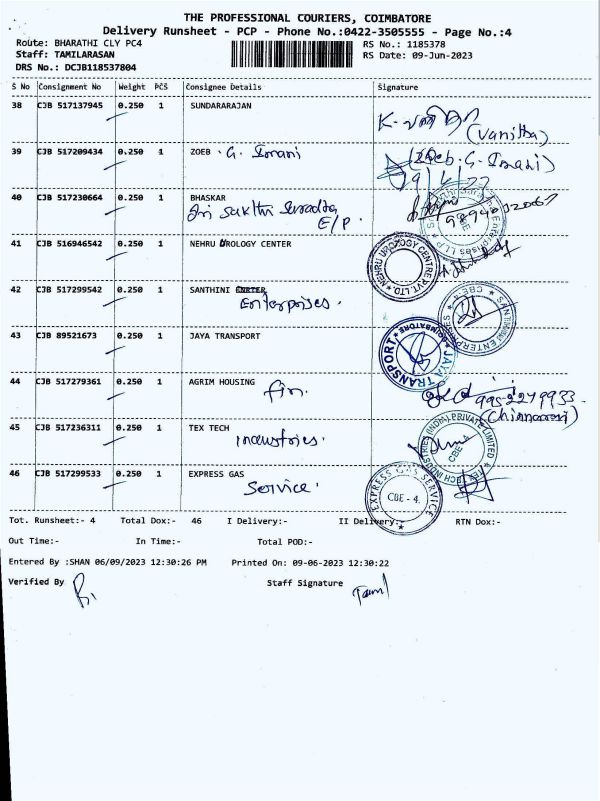 THE PROFESSIONAL COURIERS, COIMBATORE
Delivery Runsheet - PCP - Phone No.:0422-3505555 - Page No.:4
Route: BHARATHI CLY PC4 RS No.: 1185378
Staff: TAMILARASAN RS Date: 09-Jun-2023
DRS No.: DCJB118537804
S No Consignment No Weight PCS Consignee Details Signature
38 CJB 517137945 0.250 1 SUNDARARAJAN
(Vanitha)
39 CJB 517209434 0.250 1 ZOEB . G. Imani (Zoeb. G. Imani)
40 CJB 517230664 0.250 1 BHASKAR
Sri Sakthi E/P.
41 CJB 516946542 0.250 1 NEHRU UROLOGY CENTER
NEHRU UROLOGY CENTRE PVT. LTD.
42 CJB 517299542 0.250 1 SANTHINI
Enterprises.
ENTERPRISES CBE-4
43 CJB 89521673 0.250 1 JAYA TRANSPORT
JAYA TRANSPORT, COIMBATORE
44 CJB 517279361 0.250 1 AGRIM HOUSING
fin.
45 CJB 517236311 0.250 1 TEX TECH
Industries.
TEX TECH INDUSTRIES (INDIA) PRIVATE LIMITED CBE-4
46 CJB 517299533 0.250 1 EXPRESS GAS
Service.
EXPRESS GAS SERVICE CBE - 4.
Tot. Runsheet:- 4 Total Dox:- 46 I Delivery:- II Delivery:- RTN Dox:-
Out Time:- In Time:- Total POD:-
Entered By :SHAN 06/09/2023 12:30:26 PM Printed On: 09-06-2023 12:30:22
Verified By Staff Signature
Tamil